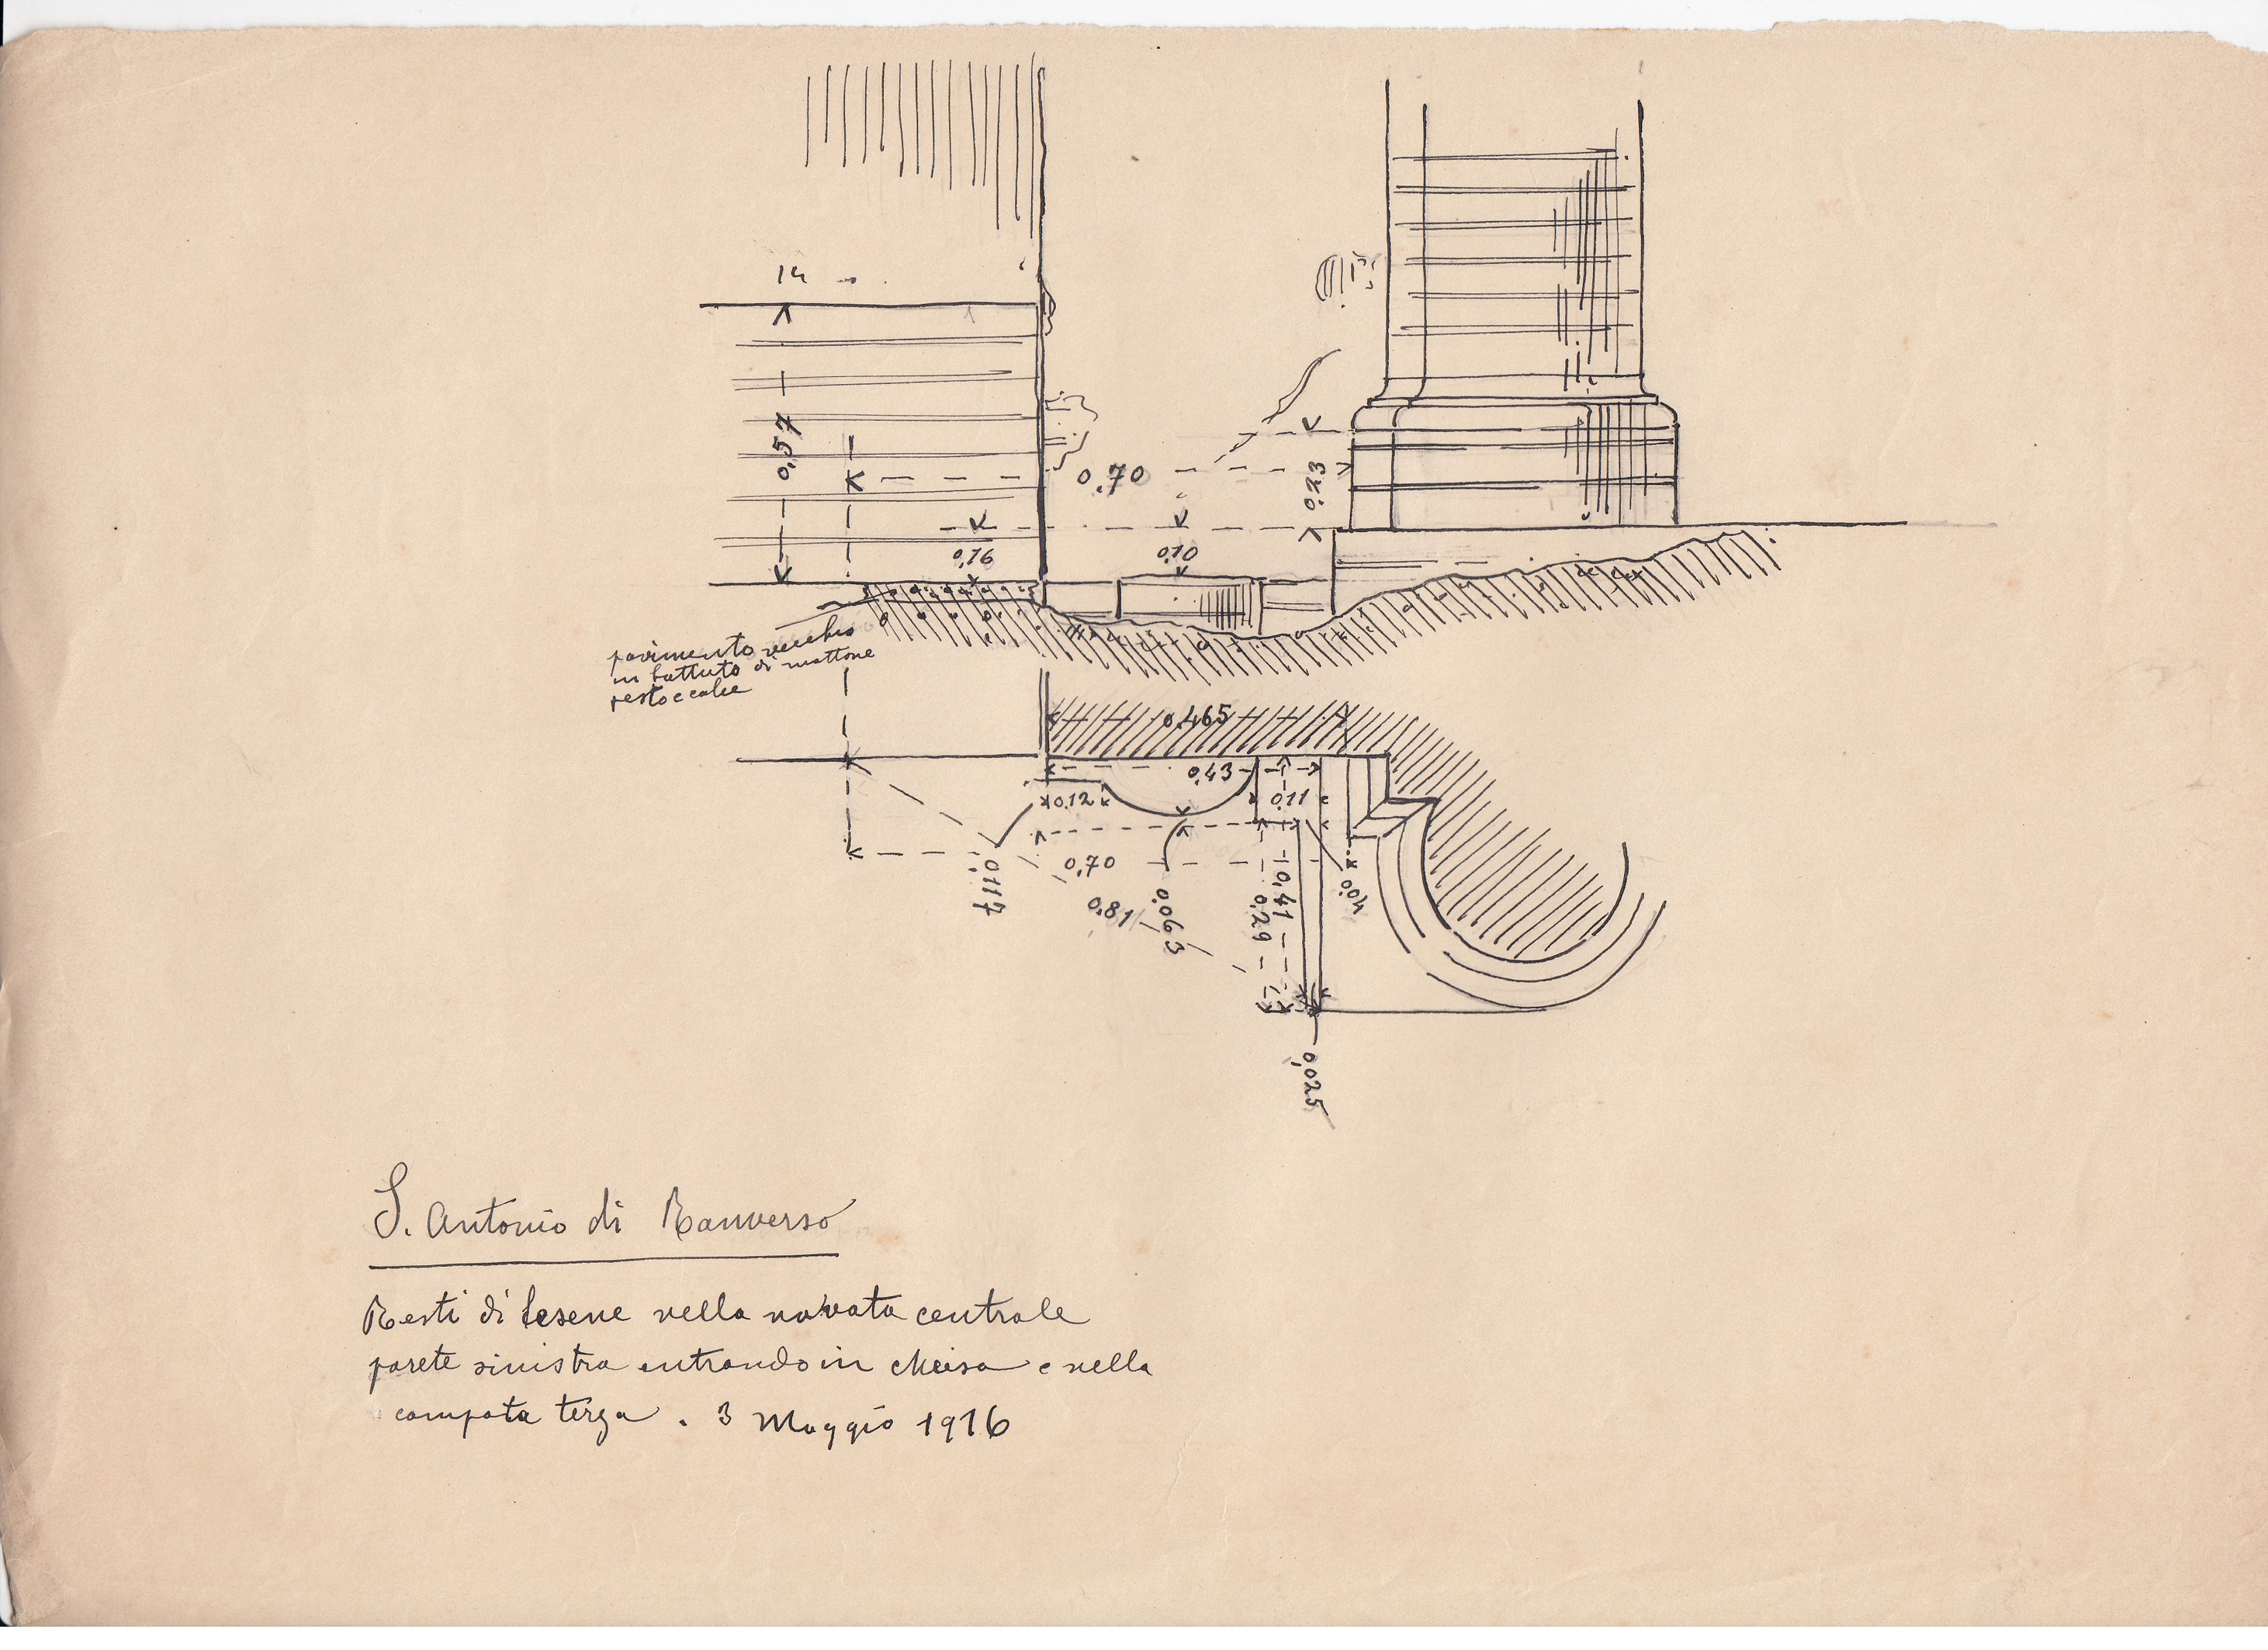 14
0,57
0,70
0,23
0,16
0,10
pavimento vecchio
in battuto di mattone
pesto e calce
0,465
0,43
0,12
0,11
0,70
0,117
0,81
0,063
0,41
0,29
0,04
0,025
S. Antonio di Ranverso
Resti di lesene nella navata centrale
parete sinistra entrando in chiesa e nella
campata terza. 3 Maggio 1916